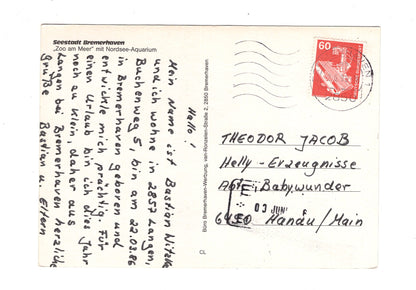 Seestadt Bremerhaven
„Zoo am Meer" mit Nordsee-Aquarium
Hallo!
Mein Name ist Bastian
und ich wohne in 2857 Langen,
Buchenweg 5, bin am 22.03.86
in Bremerhaven geboren und
entwickle mich prächtig. Für
einen Urlaub bin ich dies Jahr
noch zu klein daher aus
Langen bei Bremerhaven herzliche
Grüße Bastian u. Eltern
Büro Bremerhaven-Werbung, van-Ronzelen-Straße 2, 2850 Bremerhaven
CL
60
2850
THEODOR JACOB
Helly-Erzeugnisse
Abt. Babywunder
6450 Hanau/Main
03 JUNI